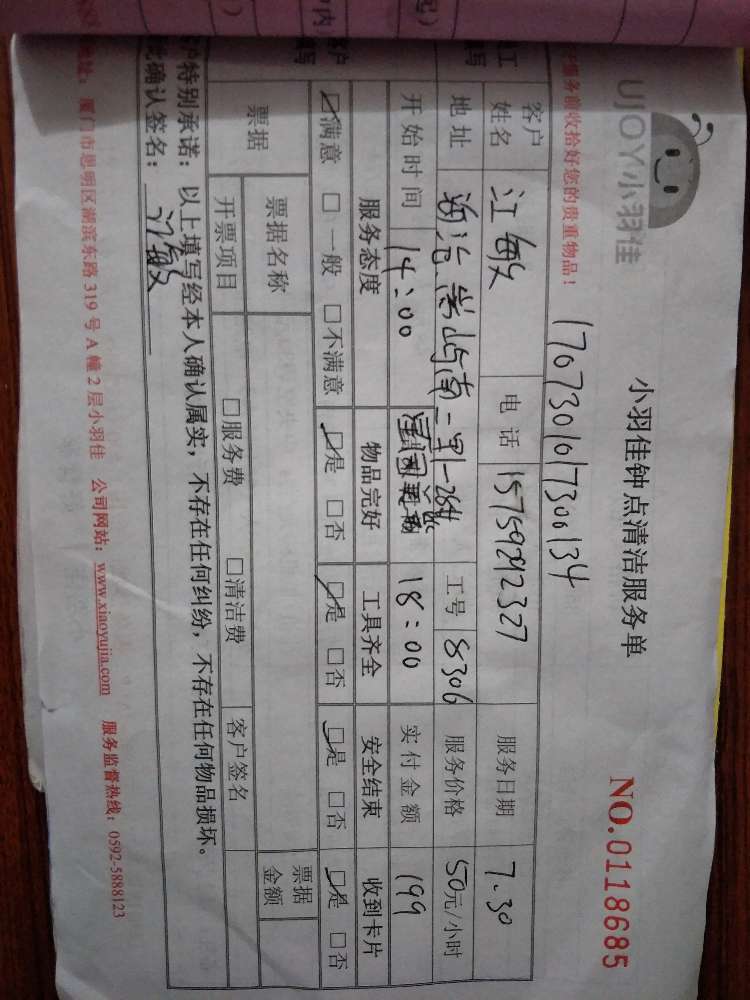 UJOY小羽佳
小羽佳钟点清洁服务单
NO.0118685
服务前收拾好您的贵重物品！
1707301017300134
客户姓名 江敏 电话 15759212327 服务日期 7.30
地址 南一里 工号 8306 服务价格 50元/小时
开始时间 14:00 18:00 实付金额 199
服务态度 物品完好 工具齐全 安全结束 收到卡片
☑满意 □一般 □不满意 ☑是 □否 ☑是 □否 ☑是 □否 ☑是 □否
票据 票据名称 票据金额
开票项目 □服务费 □清洁费 客户签名
特别承诺：以上填写经本人确认属实，不存在任何纠纷，不存在任何物品损坏。
此确认签名：江敏
地址：厦门市思明区湖滨东路319号A幢2层小羽佳 公司网站：www.xiaoyujia.com 服务监督热线：0592-5888123